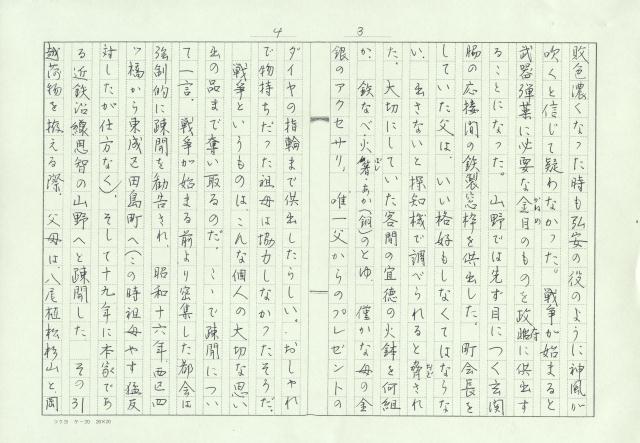 3
敗色濃くなった時も弘安の役のように神風が
吹くと信じて疑わなかった。戦争が始まると
武器弾薬に必要な金目のものを政府に供出す
ることになった。山野では先ず目につく玄関
脇の応接間の鉄製窓枠を供出した。町会長を
していた父は、いい格好もしなくてはならな
い。出さないと探知機で調べられると脅され
た。大切にしていた客間の宣徳の火鉢を何組
か、鉄なべ火箸あか(銅)のとゆ、僅かな母の金
銀のアクセサリ、唯一父からのプレゼントの
4
ダイヤの指輪まで供出したらしい。おしゃれ
で物持ちだった祖母は協力しなかったそうだ。
戦争というものは、こんな個人の大切な思い
出の品まで奪い取るのだ。ここで疎開につい
て一言。戦争が始まる前より密集した都会は
強制的に疎開を勧告され、昭和十六年、西区四
ツ橋から東成区田島町へ(この時祖母やす猛反
対したが仕方なく)、そして十九年に本家であ
る近鉄沿線恩智の山野へと疎開した。その引
越荷物を拵える際、父母は、八尾植松杉山と岡
コクヨ ケ-20 20×20